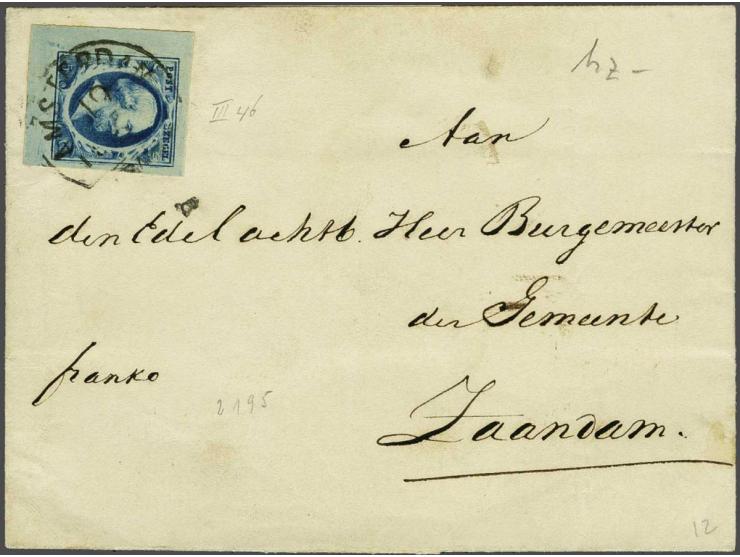 AMSTERDAM
POST ZEGEL
III 46
hz-
Aan
den Edelachtb. Heer Burgemeester
der Gemeente
franko
2195
Zaandam.
12